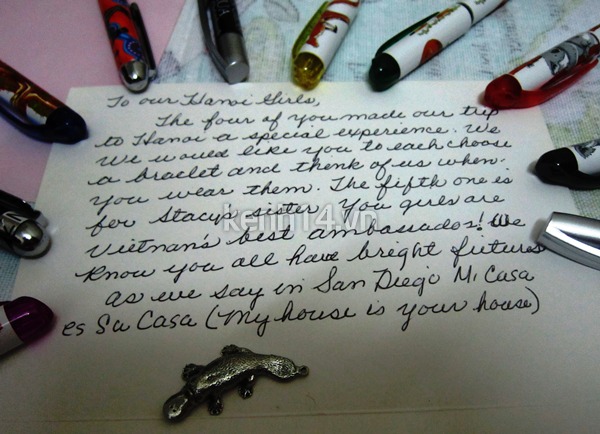 To our Hanoi Girls,
The four of you made our trip
to Hanoi a special experience. We
We would like you to each choose
a braclet and think of us when
you wear them. The fifth one is
for Stacy's sister. You girls are
kenh14.vn
Vietnam's best ambassados! We
know you all have bright futures
as we say in San Diego Mi Casa
es Su Casa (My house is your house)